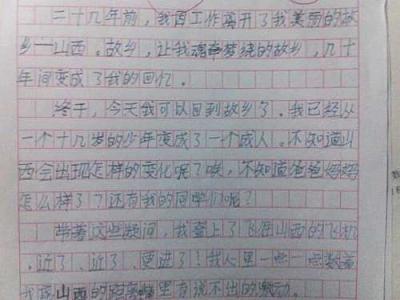 二十几年前，我因工作离开了我美丽的故
乡—山西。故乡，让我魂牵梦绕的故乡，几十
年间变成了我的回忆。
终于，今天我可以回到故乡了。我已经从
一个十几岁的少年变成了一个成人。不知道山
西会出现怎样的变化呢？唉，不知道爸爸妈妈
怎么样了？还有我的同学们呢？
带着这些疑问，我登上了飞往山西的飞机
。近了、近了、更进了！我人里一些一些数着
我离山西的距离里有说不出的激动。